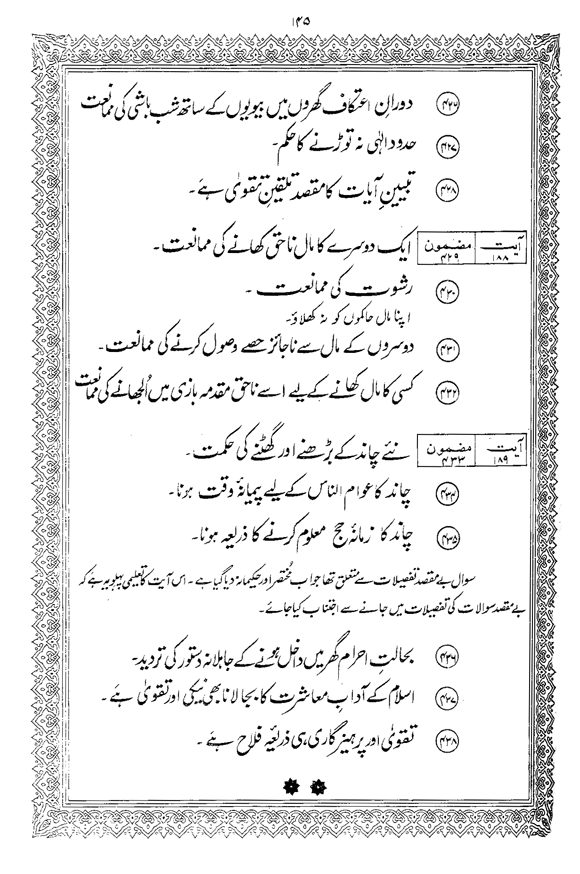 ۱۴۵
۴۲۶ دورانِ اعتکاف گھروں میں بیویوں کے ساتھ شب باشی کی ممانعت
۴۲۷ حدودِ الٰہی نہ توڑنے کا حکم۔
۴۲۸ تبیینِ آیات کا مقصد تلقینِ تقویٰ ہے۔
آیت ۱۸۸ مضمون ۴۲۹ ایک دوسرے کا مال ناحق کھانے کی ممانعت۔
۴۳۰ رشوت کی ممانعت۔
اپنا مال حاکموں کو نہ کھلاؤ۔
۴۳۱ دوسروں کے مال سے ناجائز حصے وصول کرنے کی ممانعت۔
۴۳۲ کسی کا مال کھانے کے لیے اسے ناحق مقدمہ بازی میں اُلجھانے کی ممانعت
آیت ۱۸۹ مضمون ۴۳۳ نئے چاند کے بڑھنے اور گھٹنے کی حکمت۔
۴۳۴ چاند کا عوام الناس کے لیے پیمانۂ وقت ہونا۔
۴۳۵ چاند کا زمانۂ حج معلوم کرنے کا ذریعہ ہونا۔
سوال بے مقصد تفصیلات سے متعلق تھا جواب مختصر اور حکیمانہ دیا گیا ہے۔ اس آیت کا تعلیمی پہلو یہ ہے کہ
بے مقصد سوالات کی تفصیلات میں جانے سے اجتناب کیا جائے۔
۴۳۶ بحالتِ احرام گھر میں داخل ہونے کے جاہلانہ دستور کی تردید۔
۴۳۷ اسلام کے آدابِ معاشرت کا بجا لانا بھی نیکی اور تقویٰ ہے۔
۴۳۸ تقویٰ اور پرہیزگاری ہی ذریعۂ فلاح ہے۔